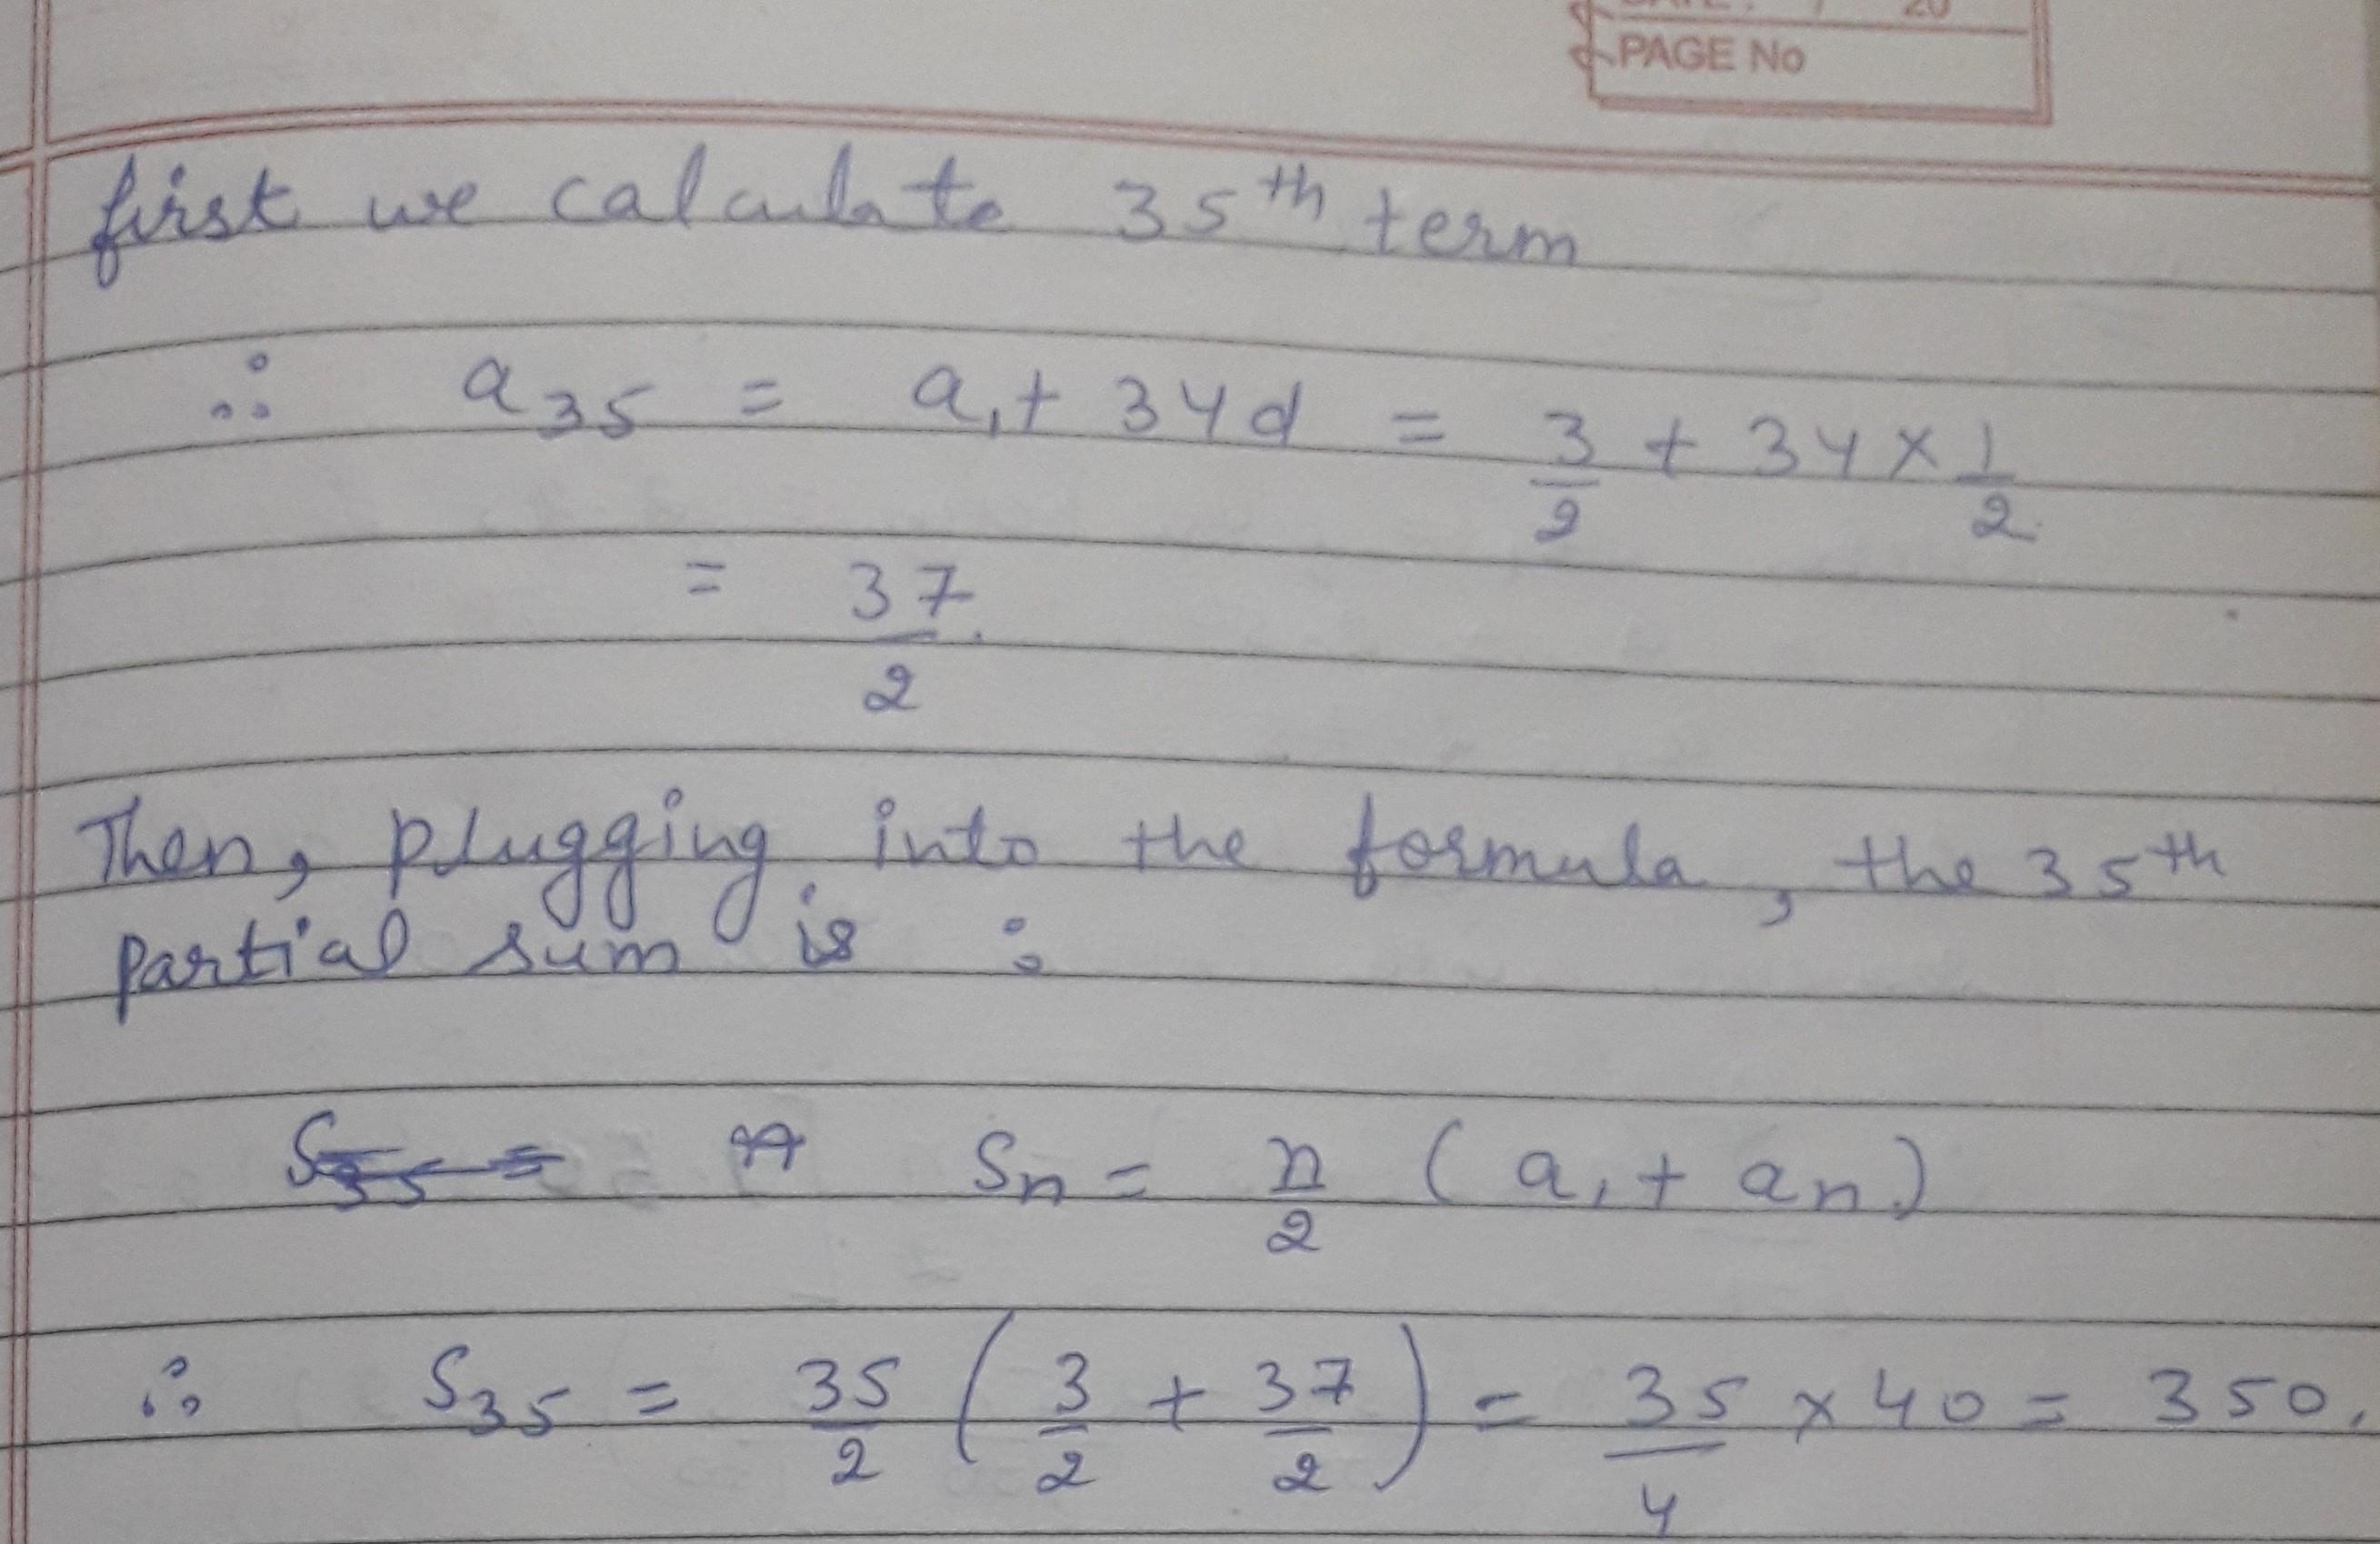 20
PAGE No
first we calculate 35th term
∴ a35 = a1 + 34d = 3/2 + 34 × 1/2
= 37/2
Then, plugging into the formula, the 35th
partial sum is :
S35 = Sn = n/2 (a1 + an)
∴ S35 = 35/2 (3/2 + 37/2) = 35/4 × 40 = 350.